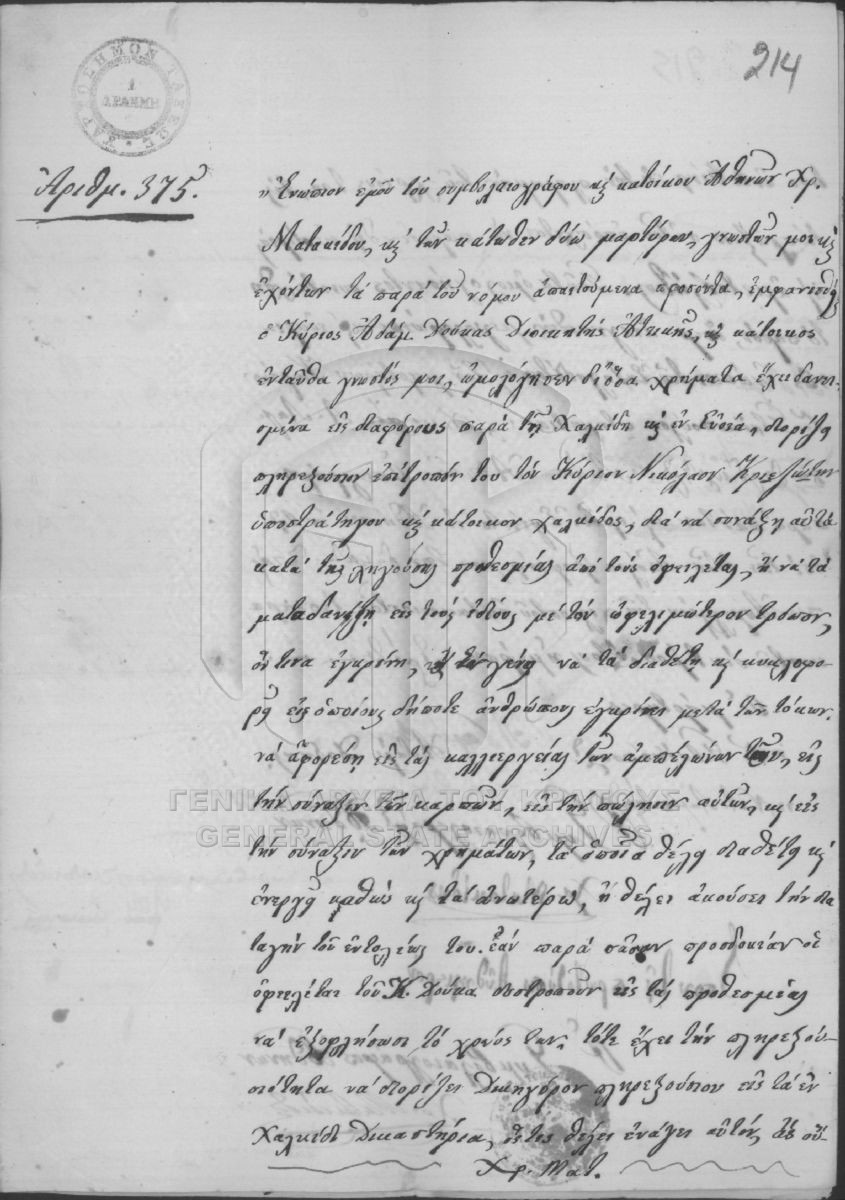 214
ΧΑΡΤΟΣΗΜΟΝ ΤΑΞΕΩΣ
1
ΔΡΑΧΜΗ
Ἀριθμ. 375.
Ἐνώπιον ἐμοῦ τοῦ συμβολαιογράφου κὶ κατοίκου Ἀθηνῶν Χρ.
Ματακίδου, κὶ τῶν κάτωθεν δύω μαρτύρων, γνωστῶν μοι κὶ
ἐχόντων τὰ παρὰ τοῦ νόμου ἀπαιτούμενα προσόντα, ἐμφανισθεὶς
ὁ Κύριος Ἀδάμ. Δούκας Διοικητής Ἀττικῆς, κὶ κάτοικος
ἐνταῦθα γνωστός μοι, ὡμολόγησεν ὅσα χρήματα ἔχει δανει-
σμένα εἰς διαφόρους παρὰ τῇ Χαλκίδι κὶ ἐν Εὐβοίᾳ, διορίζει
πληρεξούσιον ἐπίτροπόν του τὸν Κύριον Νικόλαον Κριεζώτην
ὑποστράτηγον κὶ κάτοικον Χαλκίδος, διὰ νὰ συνάξῃ αὐτὰ
κατὰ τῆς ληγούσης προθεσμίας ἀπὸ τοὺς ὀφειλέτας, ἢ νὰ τὰ
ματαδανείζῃ εἰς τοὺς ἰδίους μὲ τὸν ὠφελιμώτερον τρόπον,
ὅντινα ἐγκρίνῃ, νὰ τὰ διαθέτῃ κὶ κυκλοφο-
ρῇ εἰς ὁποίους δήποτε ἀνθρώπους ἐγκρίνει μετὰ τῶν τόκων.
νὰ ἐφορεύῃ εἰς τὰς καλλιεργείας τῶν ἀμπελώνων του, εἰς
τὴν σύναξιν τῶν καρπῶν, εἰς τὴν πώλησιν αὐτῶν, κὶ εἰς
τὴν σύναξιν τῶν χρημάτων, τὰ ὁποῖα θέλει διαθέτῃ κὶ
ἐνεργῇ καθὼς κὶ τὰ ἀνωτέρω, ἢ θέλει ἀκούσει τὴν δια
ταγὴν τοῦ ἐντολέως του. ἐὰν παρὰ πᾶσαν προσδοκίαν οἱ
ὀφειλέται τοῦ Κ. Δούκα δυστροπήσουν εἰς τὰς προθεσμίας
νὰ ἐξοφλήσωσι τὸ χρέος των, τότε ἔχει τὴν πληρεξου-
σιότητα νὰ διορίζει Δικηγόρον πληρεξούσιον εἰς τὰ ἐν
Χαλκίδι Δικαστήρια, ὅστις θέλει ἐνάγει αὐτούς,
Χρ. Ματ.
ΓΕΝΙΚΑ ΑΡΧΕΙΑ ΤΟΥ ΚΡΑΤΟΥΣ
GENERAL STATE ARCHIVES